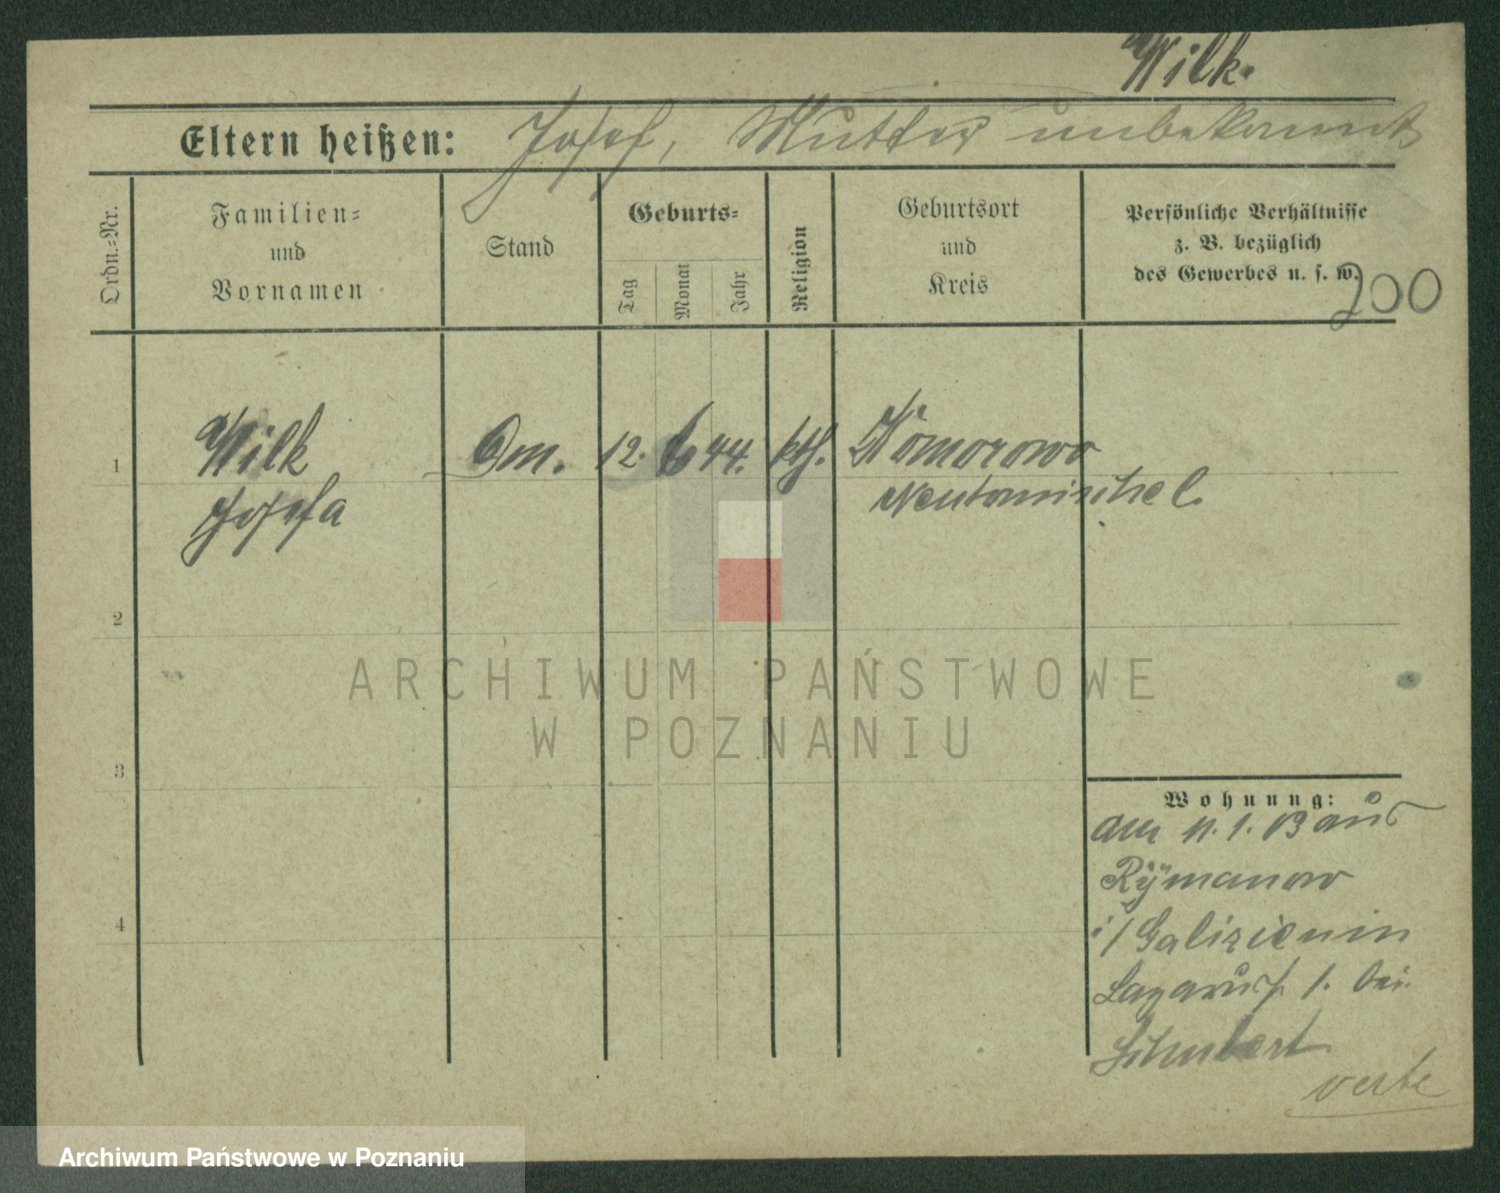 Wilk.
Eltern heißen: Josef, Mutter unbekannt
Ordn.=Nr.
Familien=
und
Vornamen
Stand
Geburts=
Tag
Monat
Jahr
Religion
Geburtsort
und
Kreis
Persönliche Verhältnisse
z. B. bezüglich
des Gewerbes u. s. w.
200
1
Wilk
Josefa
12. 6 44. kth. Komorowo
Neutomischel.
2
3
4
ARCHIWUM PAŃSTWOWE
W POZNANIU
Wohnung:
am 11. 1. 13 aus
Rymanow
i/Galizien in
1. bei
Schubert
verte
Archiwum Państwowe w Poznaniu